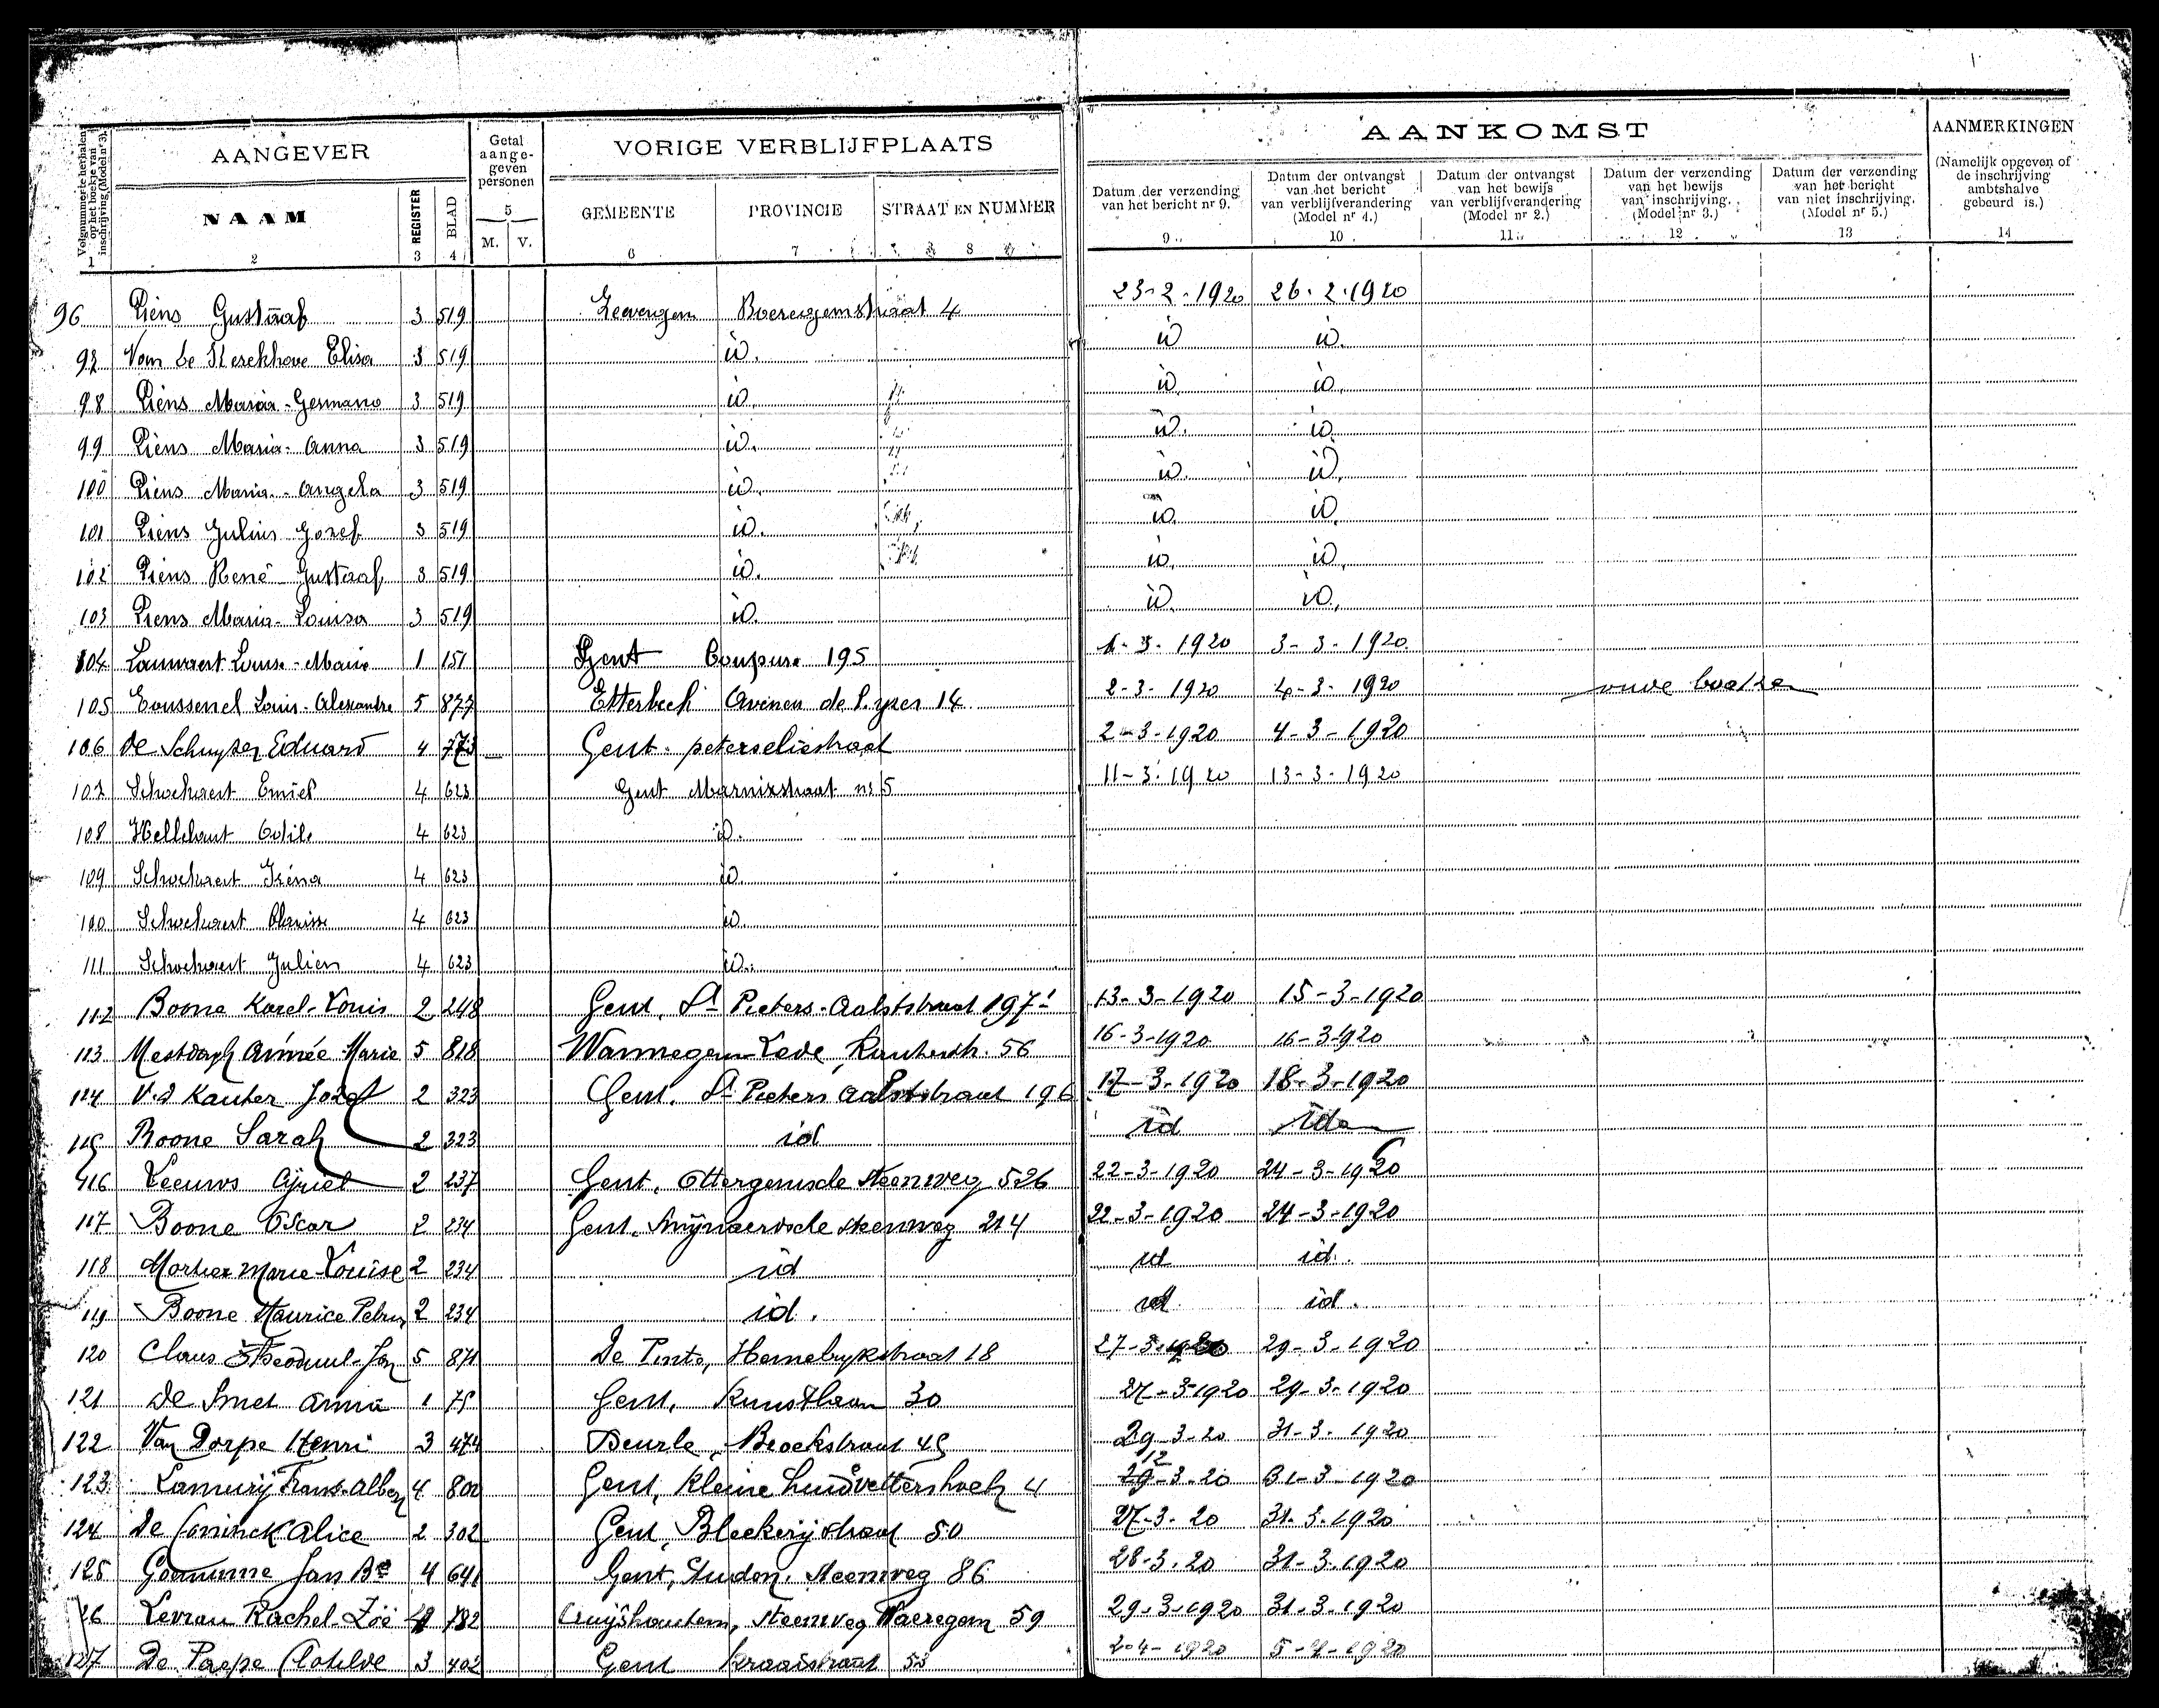 Volgnummer te herhalen op het boekje van inschrijving (Model nr 3).
AANGEVER
Getal aange- geven personen
VORIGE VERBLIJFPLAATS
AANKOMST
AANMERKINGEN
(Namelijk opgeven of de inschrijving ambtshalve gebeurd is.)
NAAM REGISTER BLAD M. V. GEMEENTE PROVINCIE STRAAT EN NUMMER
Datum der verzending van het bericht nr 9.
Datum der ontvangst van het bericht van verblijfverandering (Model nr 4.)
Datum der ontvangst van het bewijs van verblijfverandering (Model nr 2.)
Datum der verzending van het bewijs van inschrijving. (Model nr 3.)
Datum der verzending van het bericht van niet inschrijving. (Model nr 5.)
1 2 3 4 5 6 7 8 9 10 11 12 13 14
96 Piens Gustaaf 3 519 Zeevergem Boeregemstraat 4 23-2-1920 26-2-1920
97 Van de Kerekhove Elisa 3 519 id. id id.
98 Piens Maria-Germano 3 519 id. id id.
99 Piens Maria-Anna 3 519 id. id. id.
100 Piens Maria-Angela 3 519 id. id. id.
101 Piens Julius Jozef 3 519 id. id. id.
102 Piens René-Gustaaf 3 519 id. id. id.
103 Piens Maria-Louisa 3 519 id. id. id.
104 Lauwaert Louise-Marie 1 151 Gent Coupure 195 1-3-1920 3-3-1920
105 Toussenel Louis-Alexandre 5 877 Etterbeek Avenue de l'yzer 14 2-3-1920 4-3-1920
106 De Schuyter Eduard 4 773 Gent peterseliestraat 2-3-1920 4-3-1920
107 Schockaert Emiel 4 623 Gent Marnixstraat nr 5 11-3-1920 13-3-1920
108 Hellebaut Odile 4 623 id.
109 Schockaert Iréna 4 623 id.
110 Schockaert Clarisse 4 623 id.
111 Schockaert Julien 4 623 id.
112 Boone Karel-Louis 2 248 Gent, St Pieters-Aalststraat 197 13-3-1920 15-3-1920
113 Mestdagh Aimée Marie 5 818 Wannegem-Lede, 56 16-3-1920 16-3-1920
114 V.d Kauter Jozef 2 323 Gent, St Pieters Aalststraat 196 17-3-1920 18-3-1920
115 Boone Sarah 2 323 id id idem
116 Leeuws Cyriel 2 237 Gent, Ottergemsche steenweg 526 22-3-1920 24-3-1920
117 Boone Oscar 2 234 Gent, Swijnaerdsche steenweg 214 22-3-1920 24-3-1920
118 Mortier Marie-Louise 2 234 id id id.
119 Boone Maurice Petrus 2 234 id. id id.
120 Claus Theoduul-Jan 5 871 De Pinte, 18 27-3-1920 29-3-1920
121 De Smet Anna 1 75 Gent, Kunstlaan 30 27-3-1920 29-3-1920
122 Van Dorpe Henri 3 474 Deurle, Broekstraat 45 29-3-20 31-3-1920
123 Frans-Albert 4 800 Gent, Kleine huidvettershoek 4 12 29-3-20 31-3-1920
124 De Coninck Alice 2 302 Gent, Bleekerijstraat 50 27-3-20 31-3-1920
125 Jan Bte 4 641 Gent, steenweg 86 28-3-20 31-3-1920
126 Levrau Rachel-Zoë 4 782 Cruyshoutem, steenweg Waeregem 59 29-3-1920 31-3-1920
127 De Paepe Clotilde 3 402 Gent Kraaistraat 53 2-4-1920 5-4-1920